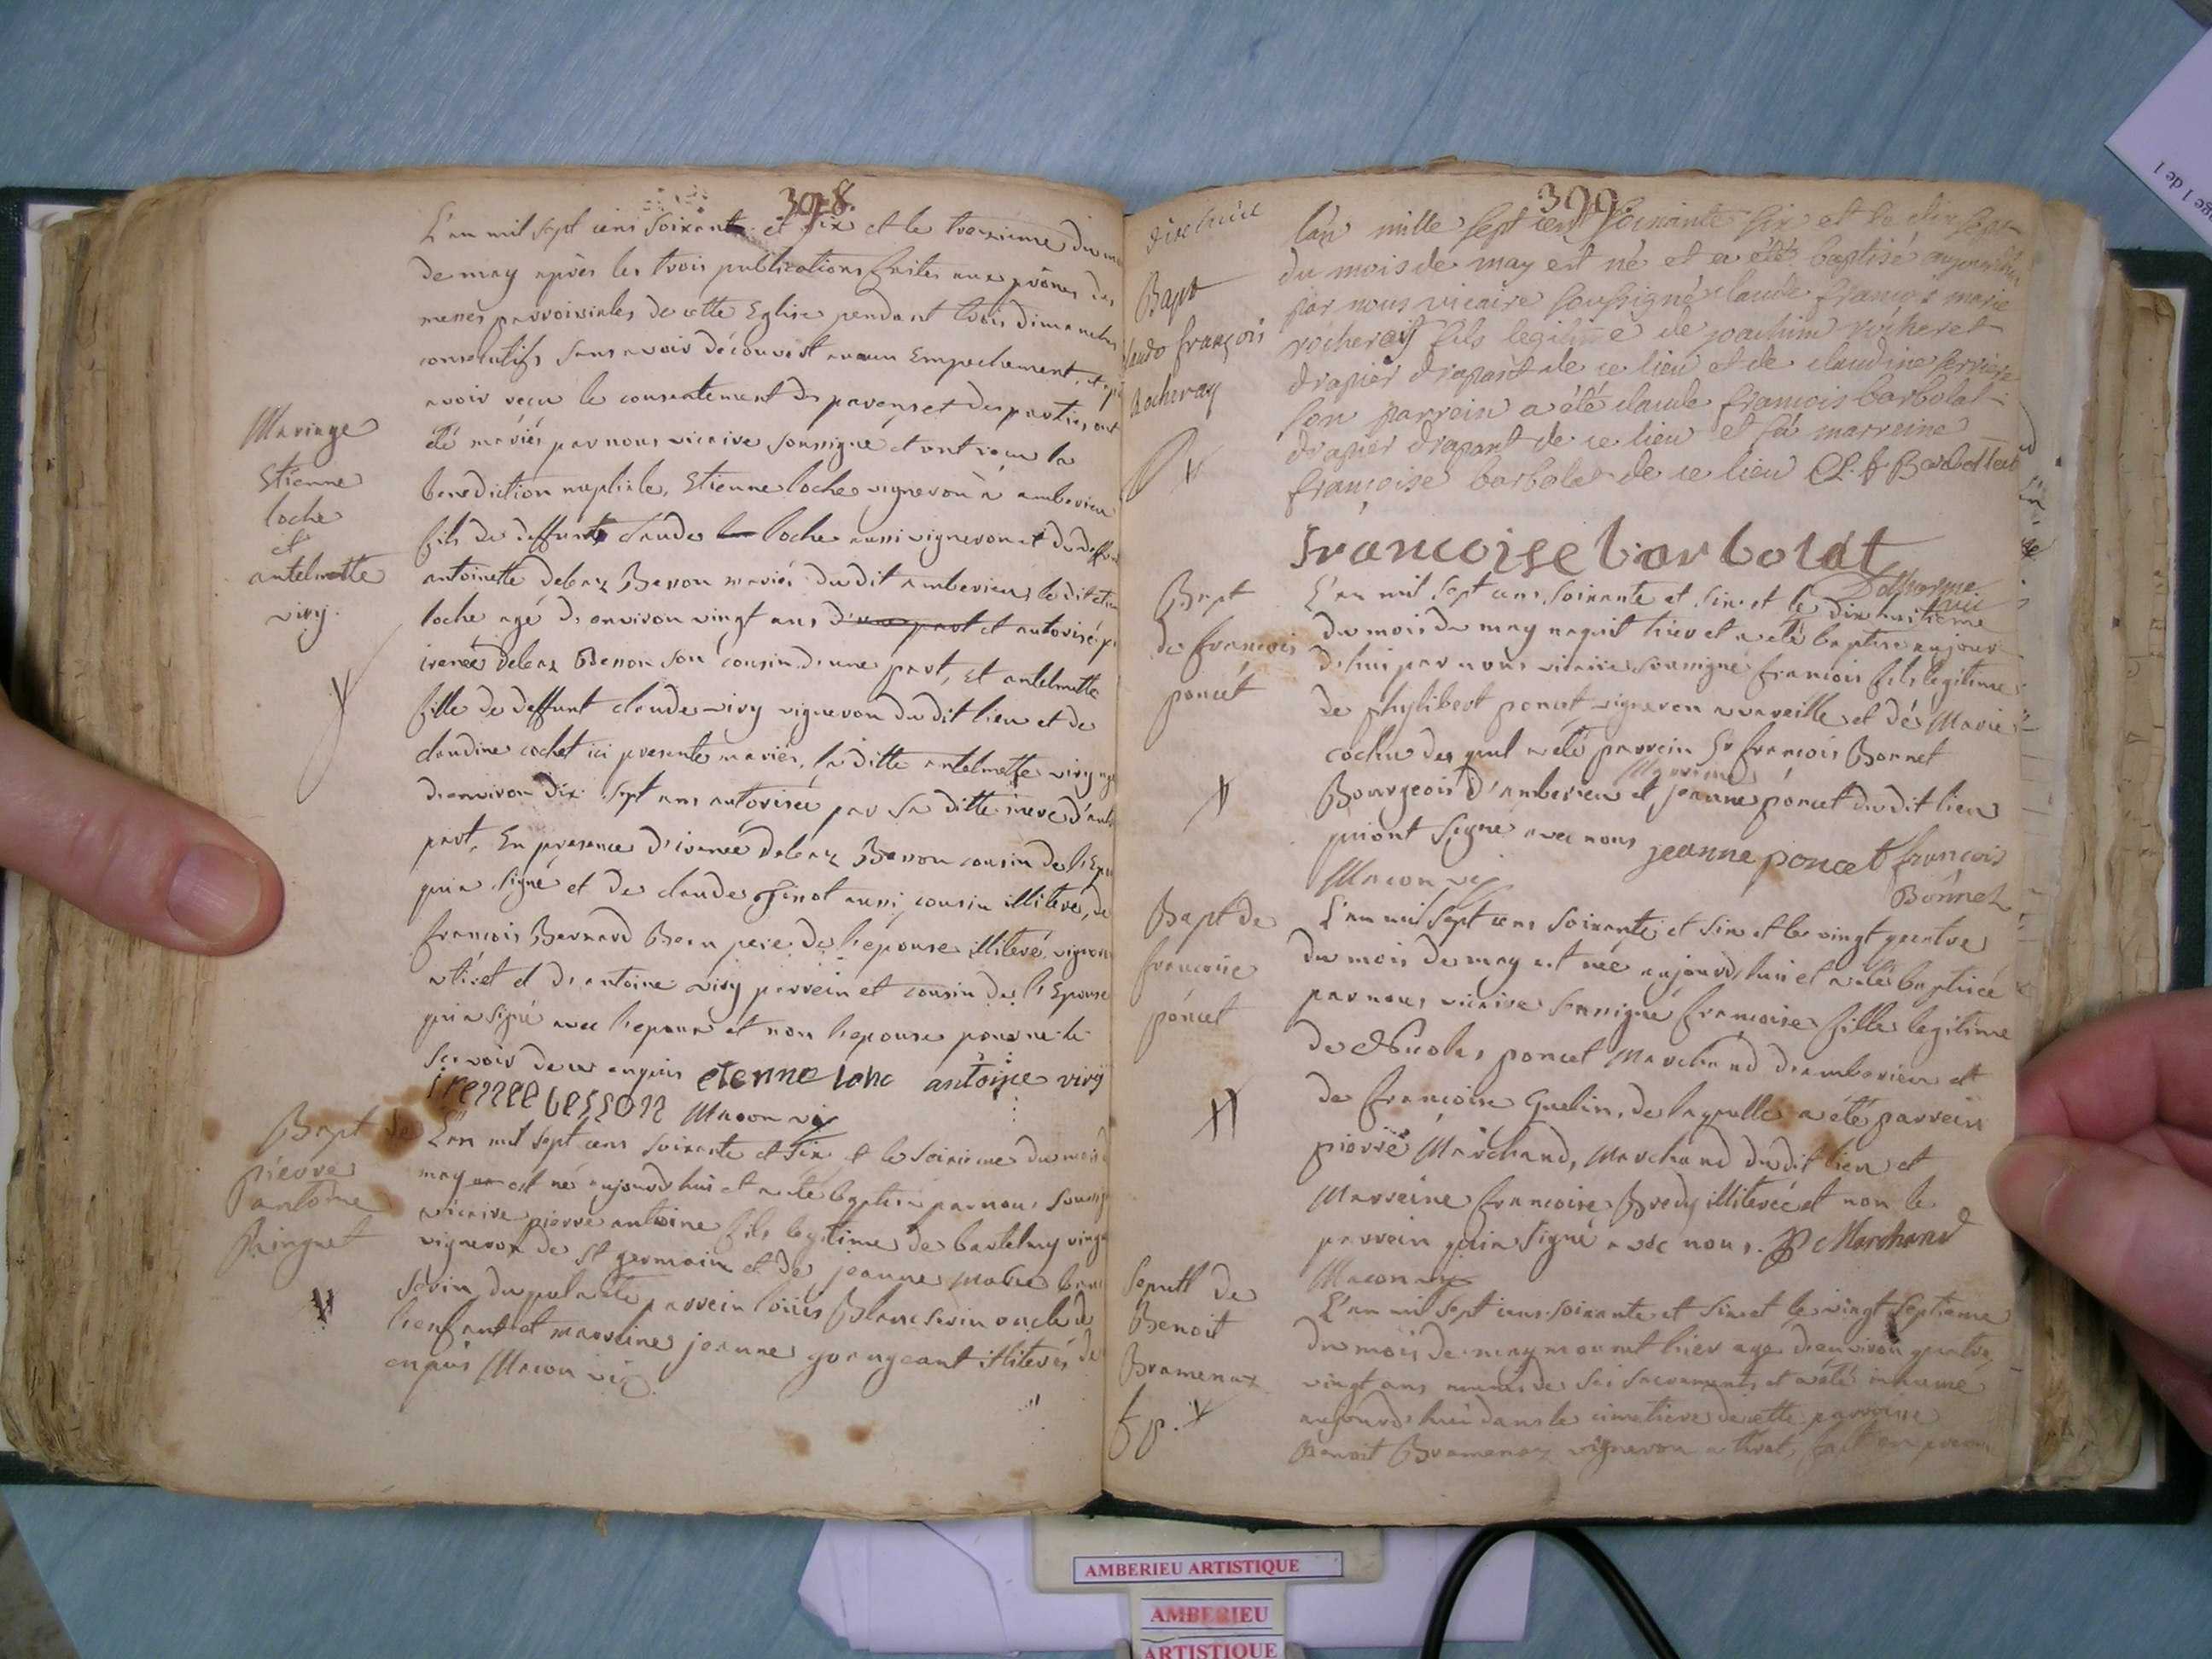 398.
L'an mil sept cens soixante et six et le treizieme du
de may après les trois publications faites aux prônes des
messes parroissiales de cette Eglise pendant trois dimanches
consecutifs sans avoir découvert aucun Empechement, et
avoir recu le consentement des parens et des parties, ont
été mariés par nous vicaire soussigné et ont reçu la
benediction nuptiale, Etienne loche vigneron à amberieu
fils de deffunt claude loche aussi vigneron et de
antoinette debeaz Besson mariés du dit amberieu, le dit
loche agé d'environ vingt ans d'une part et autorisé
irenée debeaz Besson son cousin d'une part, Et antelmette
fille de deffunt claude viry vigneron du dit lieu et de
claudine cochet ici presente mariés, la ditte antelmette viry
d'environ dix sept ans autorisée par sa ditte mere d'autre
part, En presence d'irenée debeaz Besson cousin de l'Ep
qui a signé et de claude ginot aussi cousin illiteré, de
francois Bernard Beau pere de l'épouse illiteré vigneron
a tiret et d'antoine viry parrein et cousin de l'Epouse
qui a signé avec l'epoux et non l'epouse pour ne le
scavoir de ce enquis etienne lohe antoine viry
irenee besson Macon vic
Mariage
Etienne
loche
et
antelmette
viry.
Bapt de
pierre
antoine
L'an mil sept cens soixante et six et le seizieme du mois
may est né aujourd'hui et a été baptisé par nous
vicaire pierre antoine fils legitime de bartelmy
vigneron de St germain et de jeanne marie
sevin duquel a été parrein louis Blanc sevin oncle de
l'enfant et marreine jeanne gorugeant illiterés de
enquis Macon vic
399.
Bapt
françois
rocheray
l'an mille sept cent soixante six et le dix sept
du mois de may est né et a été baptisé aujourd'hui
par nous vicaire soussigné claude françois marie
rocheray fils legitime de joachim rocheret
drapier drapant de ce lieu et de claudine
son parrein a été claude françois barbolat
drapier drapant de ce lieu et sa marreine
françoise barbolat de ce lieu
françoise barbolat
Bapt
de francois
poncet
L'an mil sept cens soixante et six et le dix huitieme
du mois de may naquit hier et a été baptisé aujour
d'hui par nous vicaire soussigné francois fils legitime
de phylibert poncet vigneron a vareille et de Marie
cochu duquel a été parrein Sr francois Bonnet
Marreine
Bourgeois d'amberieu et jeanne poncet du dit lieu
qui ont signé avec nous jeanne poncet francois
Macon vic Bonnet
Bapt de
francoise
poncet
L'an mil sept cens soixante et six et le vingt quatre
du mois de may est née aujourd'hui et a été baptisée
par nous vicaire soussigné francoise fille legitime
de Nicolas poncet Marchand d'amberieu et
de francoise Guelin, de laquelle a été parrein
pierre Marchand, Marchand du dit lieu et
Marreine francoise Bredy illiterée et non le
parrein qui a signé avec nous. P Marchand
Macon vic
Sepult de
Benoit
Bramenaz
L'an mil sept cens soixante et six et le vingt septieme
du mois de may mourut hier agé d'environ quatre
vingt ans munis de ses sacrements et a été inhumé
aujourd'hui dans le cimetiere de cette parroisse
Benoit Bramenaz vigneron a tiret, fait en
AMBERIEU ARTISTIQUE
AMBERIEU
ARTISTIQUE